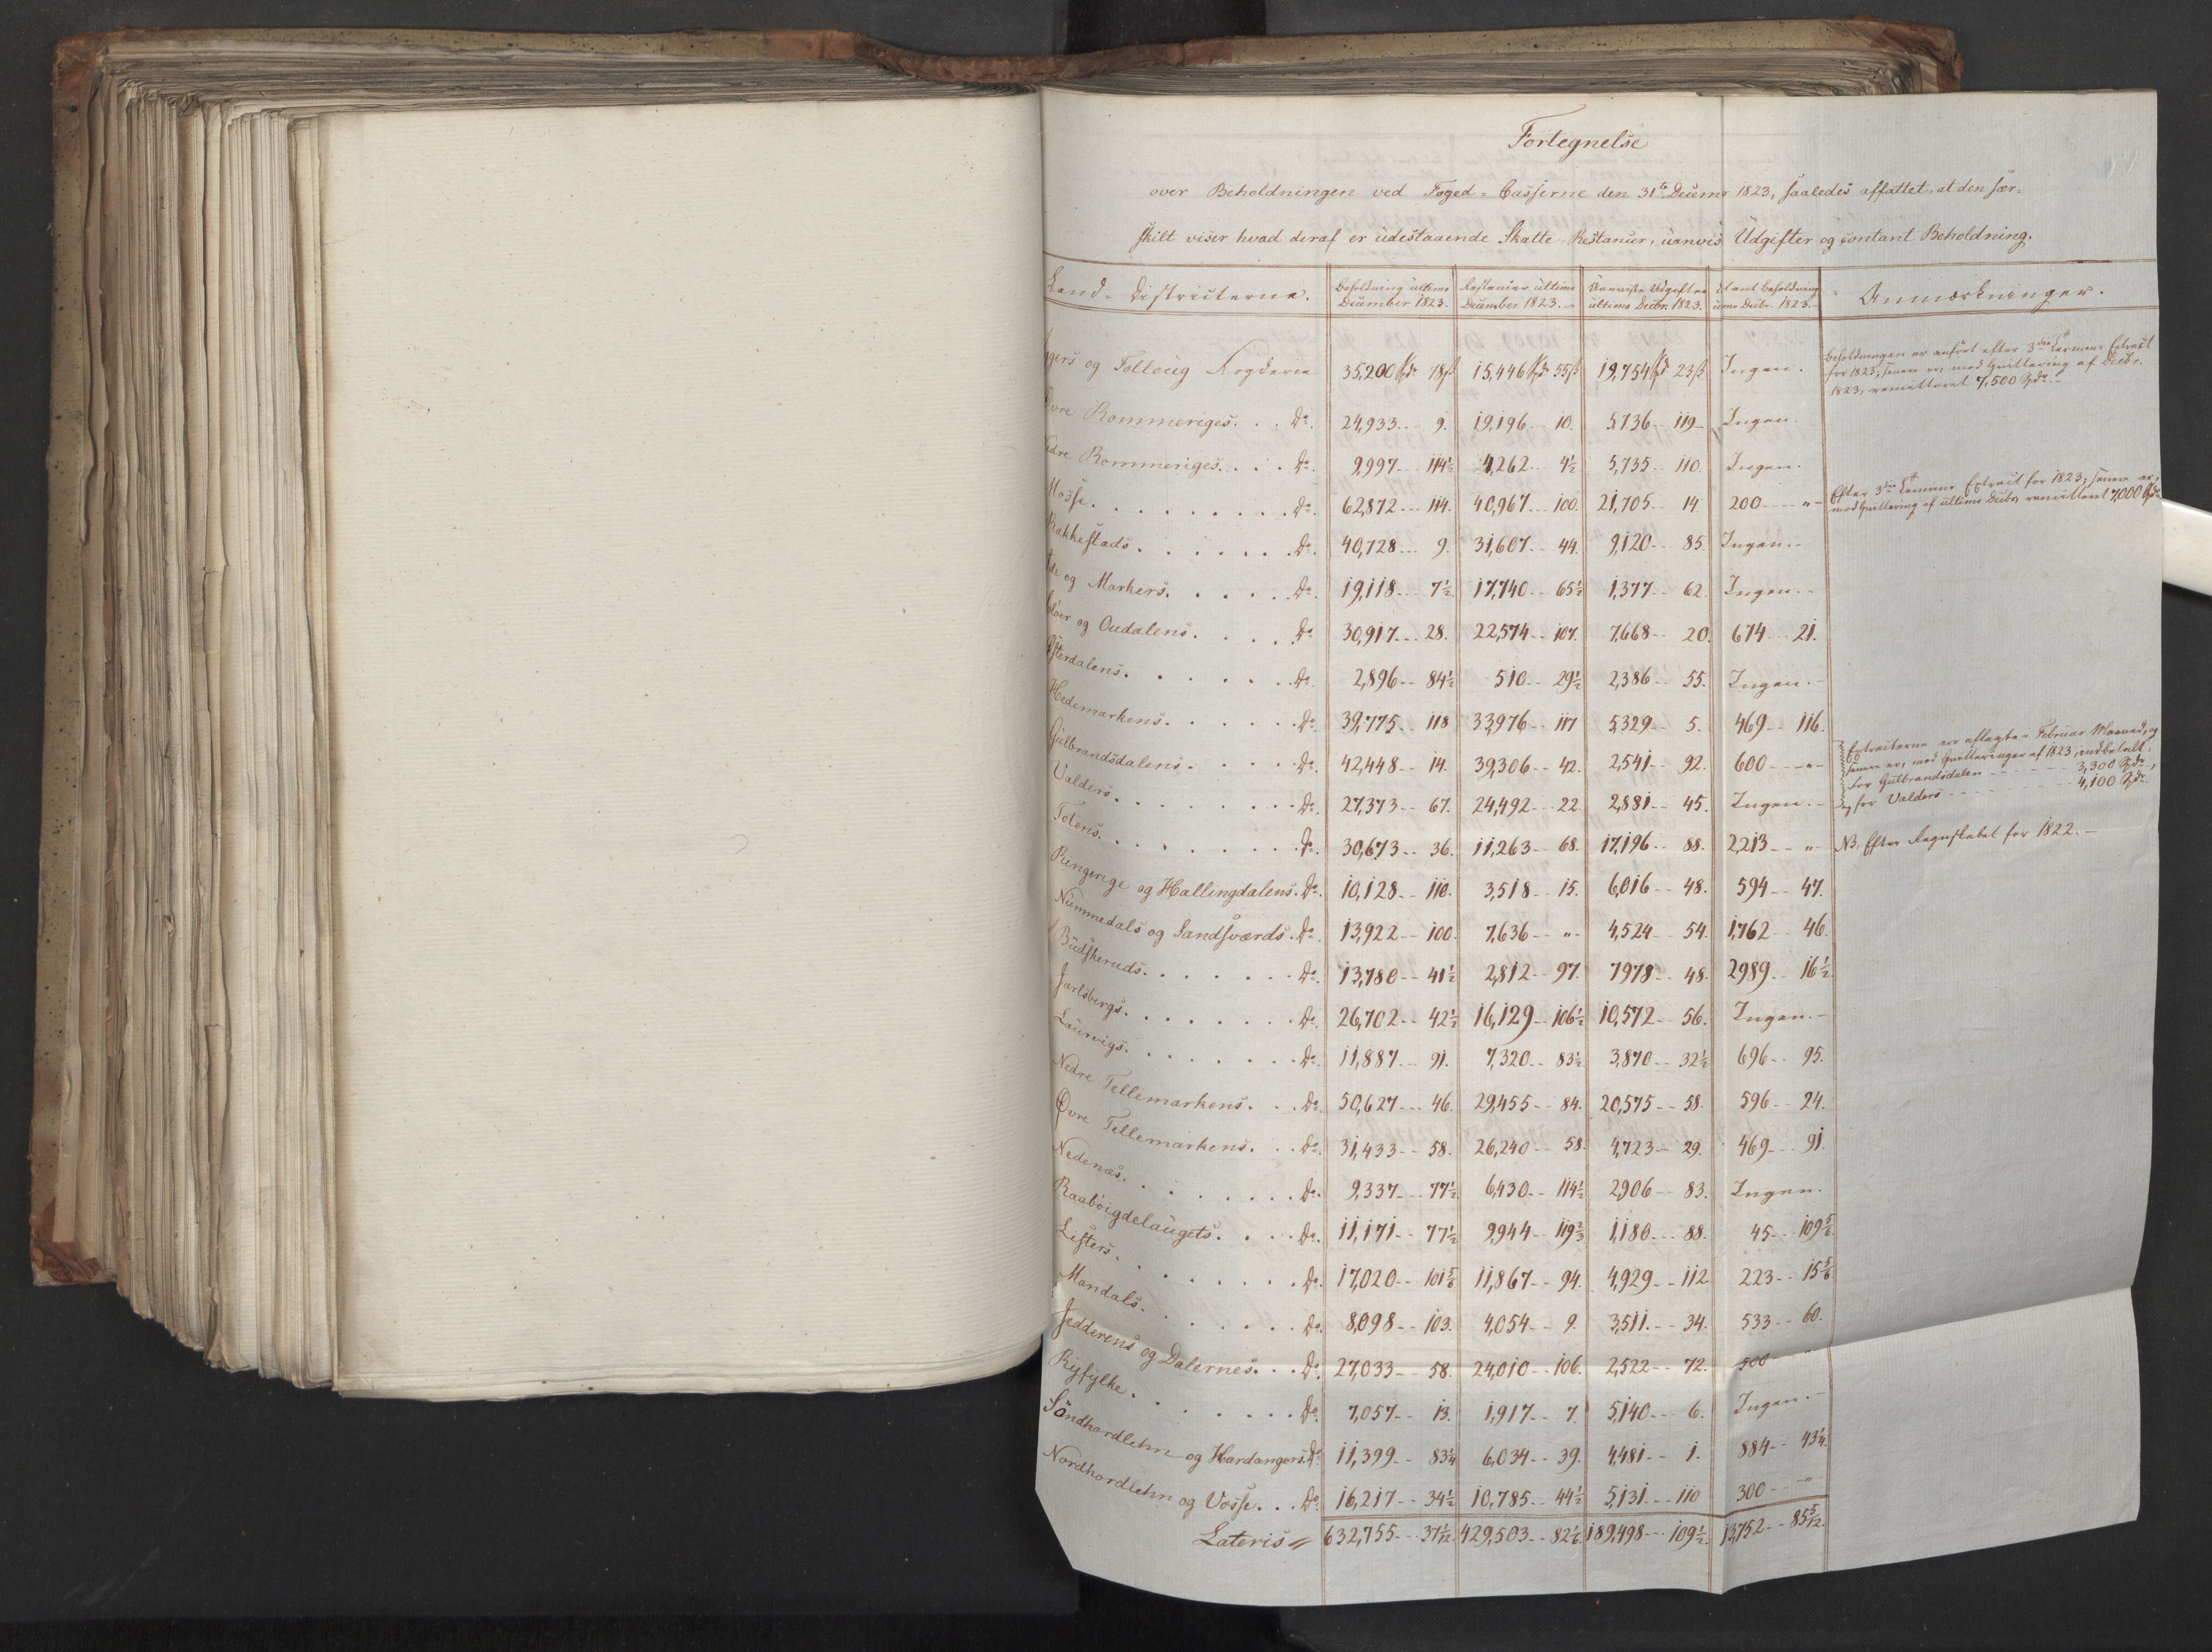 Fortegnelse
over Beholdningen ved Foged-Casserne den 31te Decembr 1823, saaledes affattet, at den sær-
skilt viser hvad deraf er udestaaende Skatte-Restancer, uanvis Udgifter og contant Beholdning.
Land-Districterne. Beholdning ultimo December 1823. Restancer ultimo December 1823. Uanviste Udgifter ultimo Decbr. 1823. Beholdning Decbr. 1823. Anmærkninger.
og Folloug Fogderie 35,200 Spd 78 ß 15,446 Spd 55 ß 19,754 Spd 23 ß Ingen. Beholdningen er anført efter 3die Termins Extract
for 1823, senere er, mod Quittering af Decbr.
1823, remitteret 7,500 Spdr.
Øvre Rommeriges. Do. 24,933 -- 9. 19,196 -- 10. 5,736 -- 119 Ingen.
Nedre Rommeriges. Do. 9,997 -- 114½ 4,262 -- 4½ 5,735 -- 110. Ingen.
Mosse. Do. 62,872 -- 114. 40,967 -- 100. 21,705 -- 14. 200 -- " Efter 3die Termins Extract for 1823; senere er,
mod Quittering af ultimo Decbr, remitteret 7,000 Spdr
Rakkestads. Do. 40,728 -- 9. 31,607 -- 44. 9,120 -- 85. Ingen.
og Markers. Do. 19,118 -- 7½ 17,740 -- 65½ 1,377 -- 62. Ingen.
og Oudalens. Do. 30,917 -- 28. 22,574 -- 107. 7,668 -- 20. 674 -- 21.
Østerdalens. Do. 2,896 -- 84½ 510 -- 29½ 2,386 -- 55. Ingen.
Hedemarkens. Do. 39,775 -- 118 33,976 -- 117 5,329 -- 5. 469 -- 116.
Gulbrandsdalens. Do. 42,448 -- 14. 39,306 -- 42. 2,541 -- 92. 600 -- " Extracterne ere aflagte i Februar Maaned, og
senere er, mod Quitteringer af 1823, indbetalt:
for Gulbrandsdalen -- 3,300 Spdr,
Valders. Do. 27,373 -- 67. 24,492 -- 22. 2,881 -- 45. Ingen. og for Valders -- 4,100 Spdr
Totens. Do. 30,673 -- 36. 11,263 -- 68. 17,196 -- 88. 2,213 -- " NB. Efter Regnskabet for 1822.
Ringerige og Hallingdalens. Do. 10,128 -- 110. 3,518 -- 15. 6,016 -- 48. 594 -- 47.
Nummedals og Sandsværds. Do. 13,922 -- 100. 7,636 -- " 4,524 -- 54. 1,762 -- 46.
Budskeruds. Do. 13,780 -- 41½ 2,812 -- 97. 7978 -- 48. 2989 -- 16½
Jarlsbergs. Do. 26,702 -- 42½ 16,129 -- 106½ 10,572 -- 56. Ingen.
Laurvigs. Do. 11,887 -- 91. 7,320 -- 83½ 3,870 -- 32½ 696 -- 95.
Nedre Tellemarkens. Do. 50,627 -- 46. 29,455 -- 84. 20,575 -- 58. 596 -- 24.
Øvre Tellemarkens. Do. 31,433 -- 58. 26,240 -- 58. 4,723 -- 29. 469 -- 91.
Nedenæs. Do. 9,337 -- 77½ 6,430 -- 114½ 2,906 -- 83. Ingen.
Raabøigdelaugets. Do. 11,171 -- 77½ 9,944 -- 119⅔ 1,180 -- 88. 45 --
Listers. Do. 17,020 -- 101⅚ 11,867 -- 94. 4,929 -- 112 223 -- 15⅚
Mandals. Do. 8,098 -- 103. 4,054 -- 9. 3,511 -- 34. 533 -- 60.
Jedderens og Dalernes. Do. 27,033 -- 58. 24,010 -- 106. 2,522 -- 72. 500 "
Ryfylke. Do. 7,057 -- 13. 1,917 -- 7. 5,140 -- 6. Ingen.
Søndhordlehn og Hardangers. Do. 11,399 -- 83¼ 6,034 -- 39. 4,481 -- 1. 884 -- 43¼
Nordhordlehn og Vosse. Do. 16,217 -- 34½ 10,785 -- 44½ 5,131 -- 110 300 -- "
Lateris 632,755 -- 37 1/12 429,503 -- 82⅙ 189,498 -- 109½ 13,752 -- 85 5/12